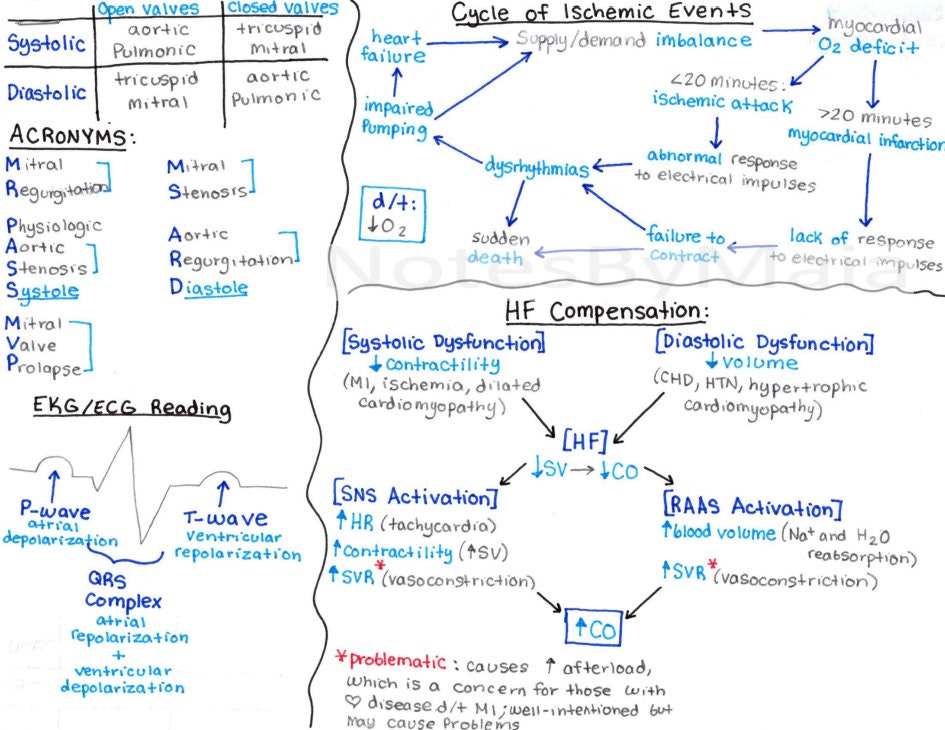 Open valves Closed valves
Systolic aortic Pulmonic tricuspid mitral
Diastolic tricuspid mitral aortic Pulmonic
ACRONYMS:
Mitral
Regurgitation
Physiologic
Aortic
Stenosis
Systole
Mitral
Valve
Prolapse
Mitral
Stenosis
Aortic
Regurgitation
Diastole
EKG/ECG Reading
P-wave
atrial
depolarization
T-wave
ventricular
repolarization
QRS
Complex
atrial
repolarization
+
ventricular
depolarization
Cycle of Ischemic Events
heart
failure
Supply/demand imbalance
myocardial
O2 deficit
<20 minutes:
ischemic attack
>20 minutes
myocardial infarction
impaired
Pumping
dysrhythmias
abnormal response
to electrical impulses
d/t:
↓O2
sudden
death
failure to
contract
lack of response
to electrical impulses
NotesByMaia
HF Compensation:
[Systolic Dysfunction]
↓contractility
(MI, ischemia, dilated
cardiomyopathy)
[Diastolic Dysfunction]
↓volume
(CHD, HTN, hypertrophic
cardiomyopathy)
[HF]
↓SV → ↓CO
[SNS Activation]
↑HR (tachycardia)
↑contractility (↑SV)
↑SVR* (vasoconstriction)
[RAAS Activation]
↑blood volume (Na+ and H2O
reabsorption)
↑SVR* (vasoconstriction)
↑CO
*problematic: causes ↑ afterload,
which is a concern for those with
♡ disease d/t MI; well-intentioned but
may cause problems